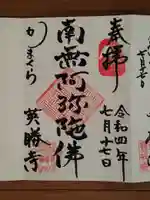 奉拝
令和四年
七月十七日
南無阿弥陀佛
かまくら
英勝寺